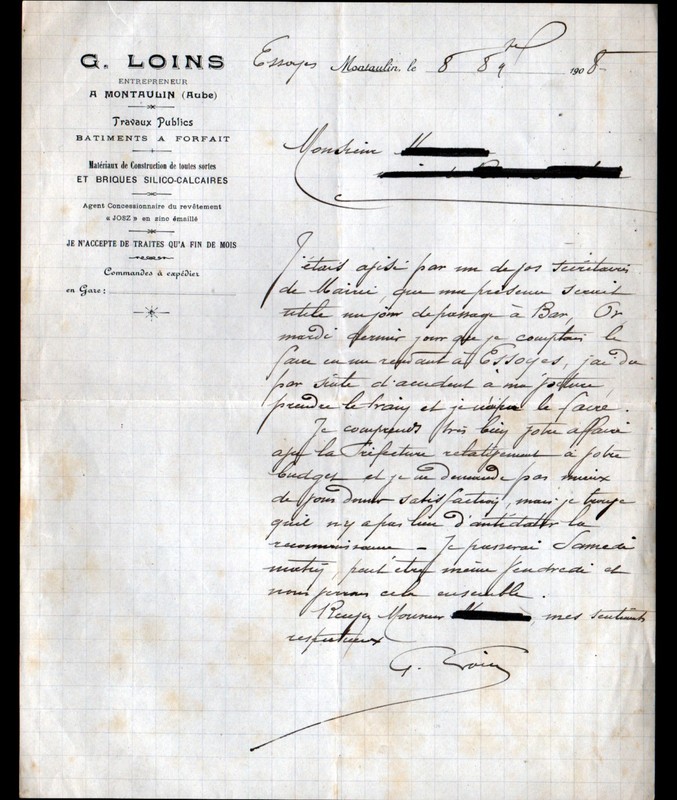 G. LOINS
ENTREPRENEUR
A MONTAULIN (Aube)
Travaux Publics
BATIMENTS A FORFAIT
Matériaux de Construction de toutes sortes
ET BRIQUES SILICO-CALCAIRES
Agent Concessionnaire du revêtement
« JOSZ » en zinc émaillé
JE N'ACCEPTE DE TRAITES QU'A FIN DE MOIS
Commandes à expédier
en Gare :
Essoyes Montaulin, le 8 8bre 1908
Monsieur
J'étais avisé par un de vos secrétaires
de Mairie, que ma présence serait
utile un jour de passage à Bar, Or
mardi dernier jour que je comptais le
faire en me rendant à Essoyes, j'ai du
par suite d'accident à ma voiture,
prendre le train et je n'ai pu le faire.
Je comprends très bien votre affaire
avec la Préfecture relativement à votre
budget et je ne demande pas mieux
de vous donner satisfaction, mais je trouve
qu'il n'y a pas lieu d'antidater la
reconnaissance - Je passerai Samedi
matin, peut être même Vendredi et
nous verrons cela ensemble.
Recevez Monsieur mes sentiments
respectueux
G. Loins